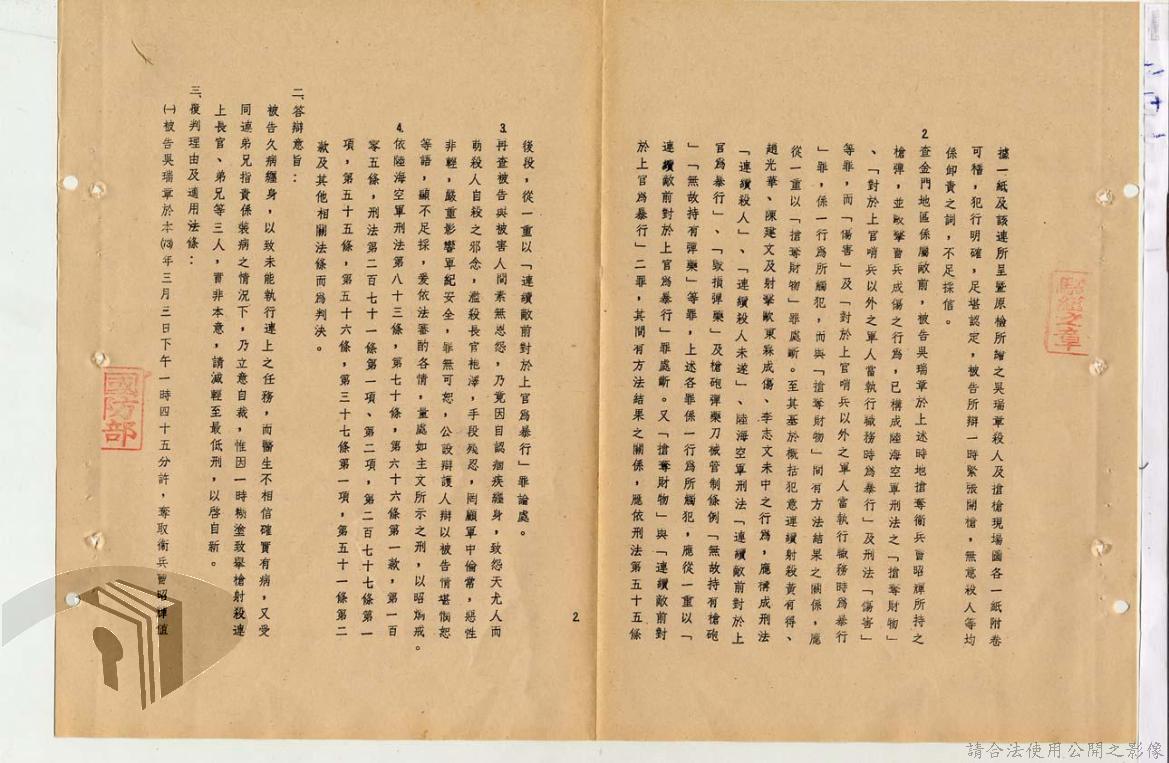 據一紙及該連所呈暨原檢所繪之吳瑞章殺人及搶槍現場圖各一紙附卷
可稽，犯行明確，足堪認定，被告所辯一時緊張開槍，無意殺人等均
係卸責之詞，不足採信。
2.查金門地區係屬敵前，被告吳瑞章於上述時地搶奪衛兵曾昭輝所持之
槍彈，並毆擊曾兵成傷之行為，已構成陸海空軍刑法之「搶奪財物」
、「對於上官哨兵以外之軍人當執行職務時為暴行」及刑法「傷害」
等罪，而「傷害」及「對於上官哨兵以外之軍人當執行職務時為暴行
」罪，係一行為所觸犯，而與「搶奪財物」間有方法結果之關係，應
從一重以「搶奪財物」罪處斷。至其基於概括犯意連續射殺黃有得、
趙光華、陳建文及射擊歐東霖成傷、李志文未中之行為，應構成刑法
「連續殺人」、「連續殺人未遂」、陸海空軍刑法「連續敵前對於上
官為暴行」、「毀損彈藥」及槍砲彈藥刀械管制條例「無故持有槍砲
」「無故持有彈藥」等罪，上述各罪係一行為所觸犯，應從一重以「
連續敵前對於上官為暴行」罪處斷。又「搶奪財物」與「連續敵前對
於上官為暴行」二罪，其間有方法結果之關係，應依刑法第五十五條
騎縫之章
2
後段，從一重以「連續敵前對於上官為暴行」罪論處。
3.再查被告與被害人間素無恩怨，乃竟因自認痼疾纏身，致怨天尤人而
萌殺人自殺之邪念，濫殺長官袍澤，手段殘忍，罔顧軍中倫常，惡性
非輕，嚴重影響軍紀安全，罪無可恕，公設辯護人辯以被告情堪憫恕
等語，顯不足採，爰依法審酌各情，量處如主文所示之刑，以昭炯戒。
4.依陸海空軍刑法第八十三條，第七十條，第六十六條第一款，第一百
零五條，刑法第二百七十一條第一項、第二項，第二百七十七條第一
項，第五十五條，第五十六條，第三十七條第一項，第五十一條第二
款及其他相關法條而為判決。
二、答辯意旨：
被告久病纏身，以致未能執行連上之任務，而醫生不相信確實有病，又受
同連弟兄指責係裝病之情況下，乃立意自裁，惟因一時糊塗致舉槍射殺連
上長官、弟兄等三人，實非本意，請減輕至最低刑，以啓自新。
三、覆判理由及適用法條：
㈠被告吳瑞章於本(73)年三月三日下午一時四十五分許，奪取衛兵曾昭輝值
國防部
請合法使用公開之影像